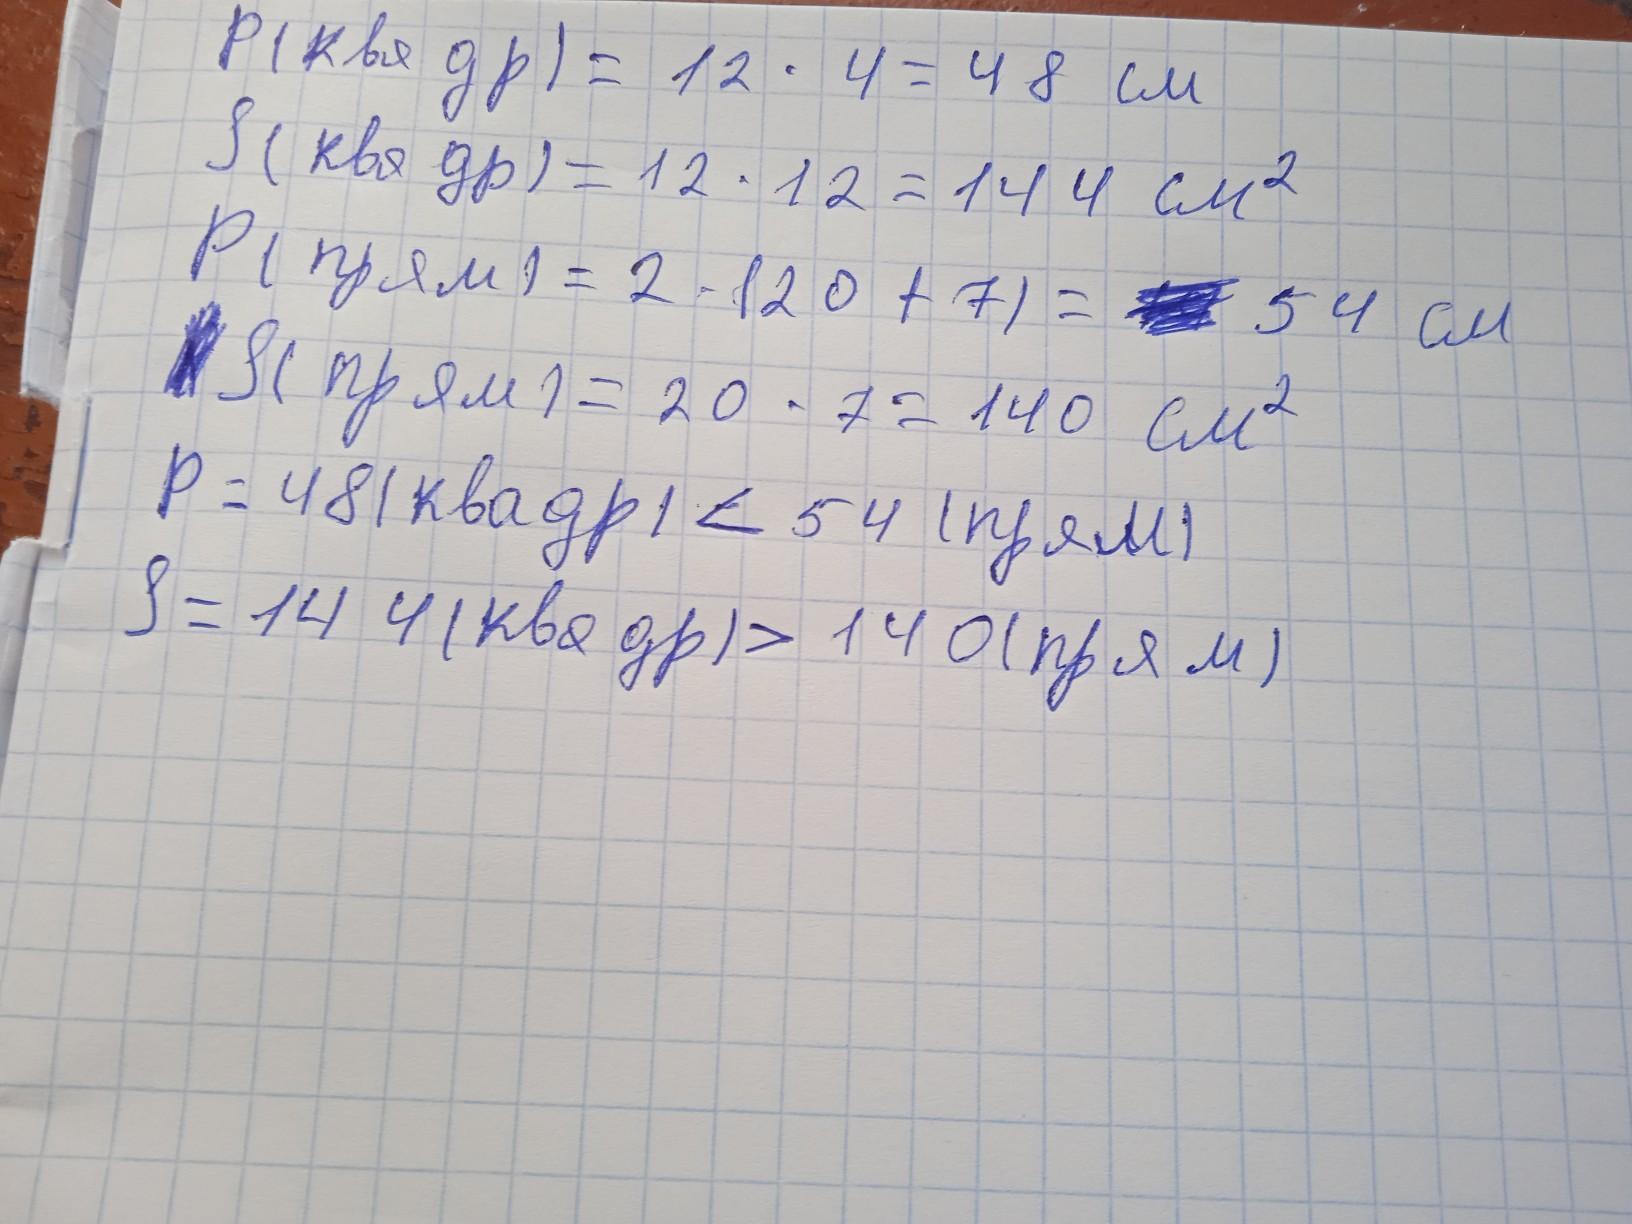 P(квадр) = 12 · 4 = 48 см
S(квадр) = 12 · 12 = 144 см²
P(прям) = 2 · (20 + 7) = 54 см
S(прям) = 20 · 7 = 140 см²
P = 48(квадр) < 54 (прям)
S = 144(квадр) > 140(прям)